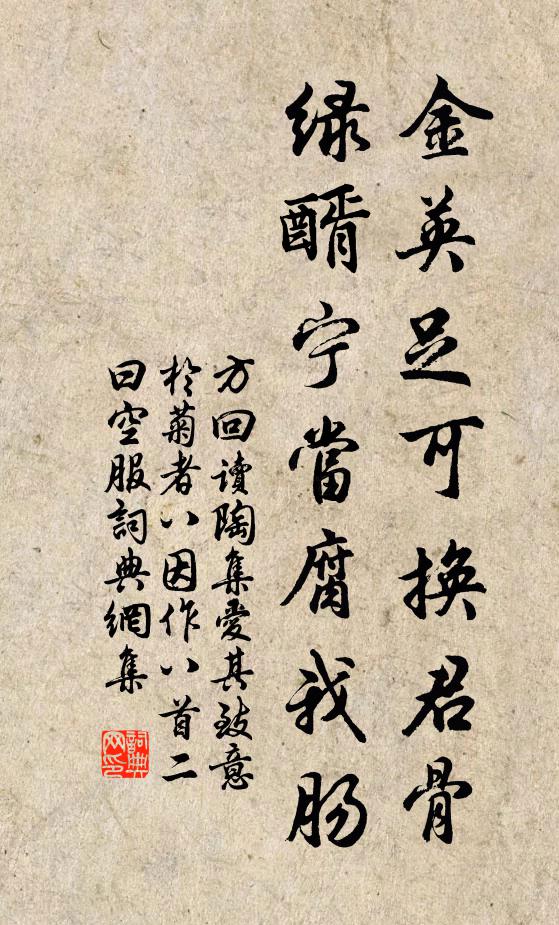 金英足可換君骨
緑醑宁當腐我肠
方回讀陶集愛其致意
於菊者八因作八首二
曰空服詞典網集
詞典网印